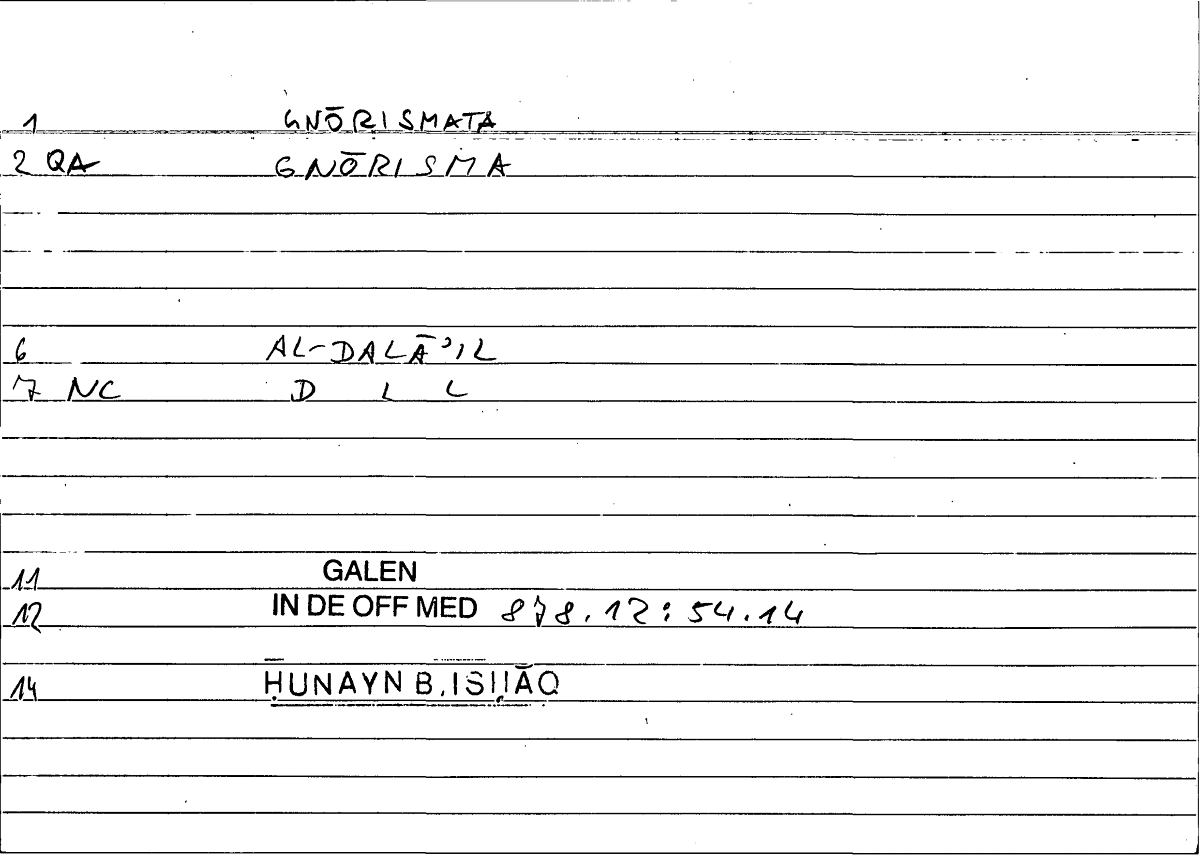 1 GNŌRISMATA
2 QA GNŌRISMA
6 AL-DALĀʾIL
7 NC D L L
11 GALEN
12 IN DE OFF MED 878.12:54.14
14 ḤUNAYN B. ISḤĀQ